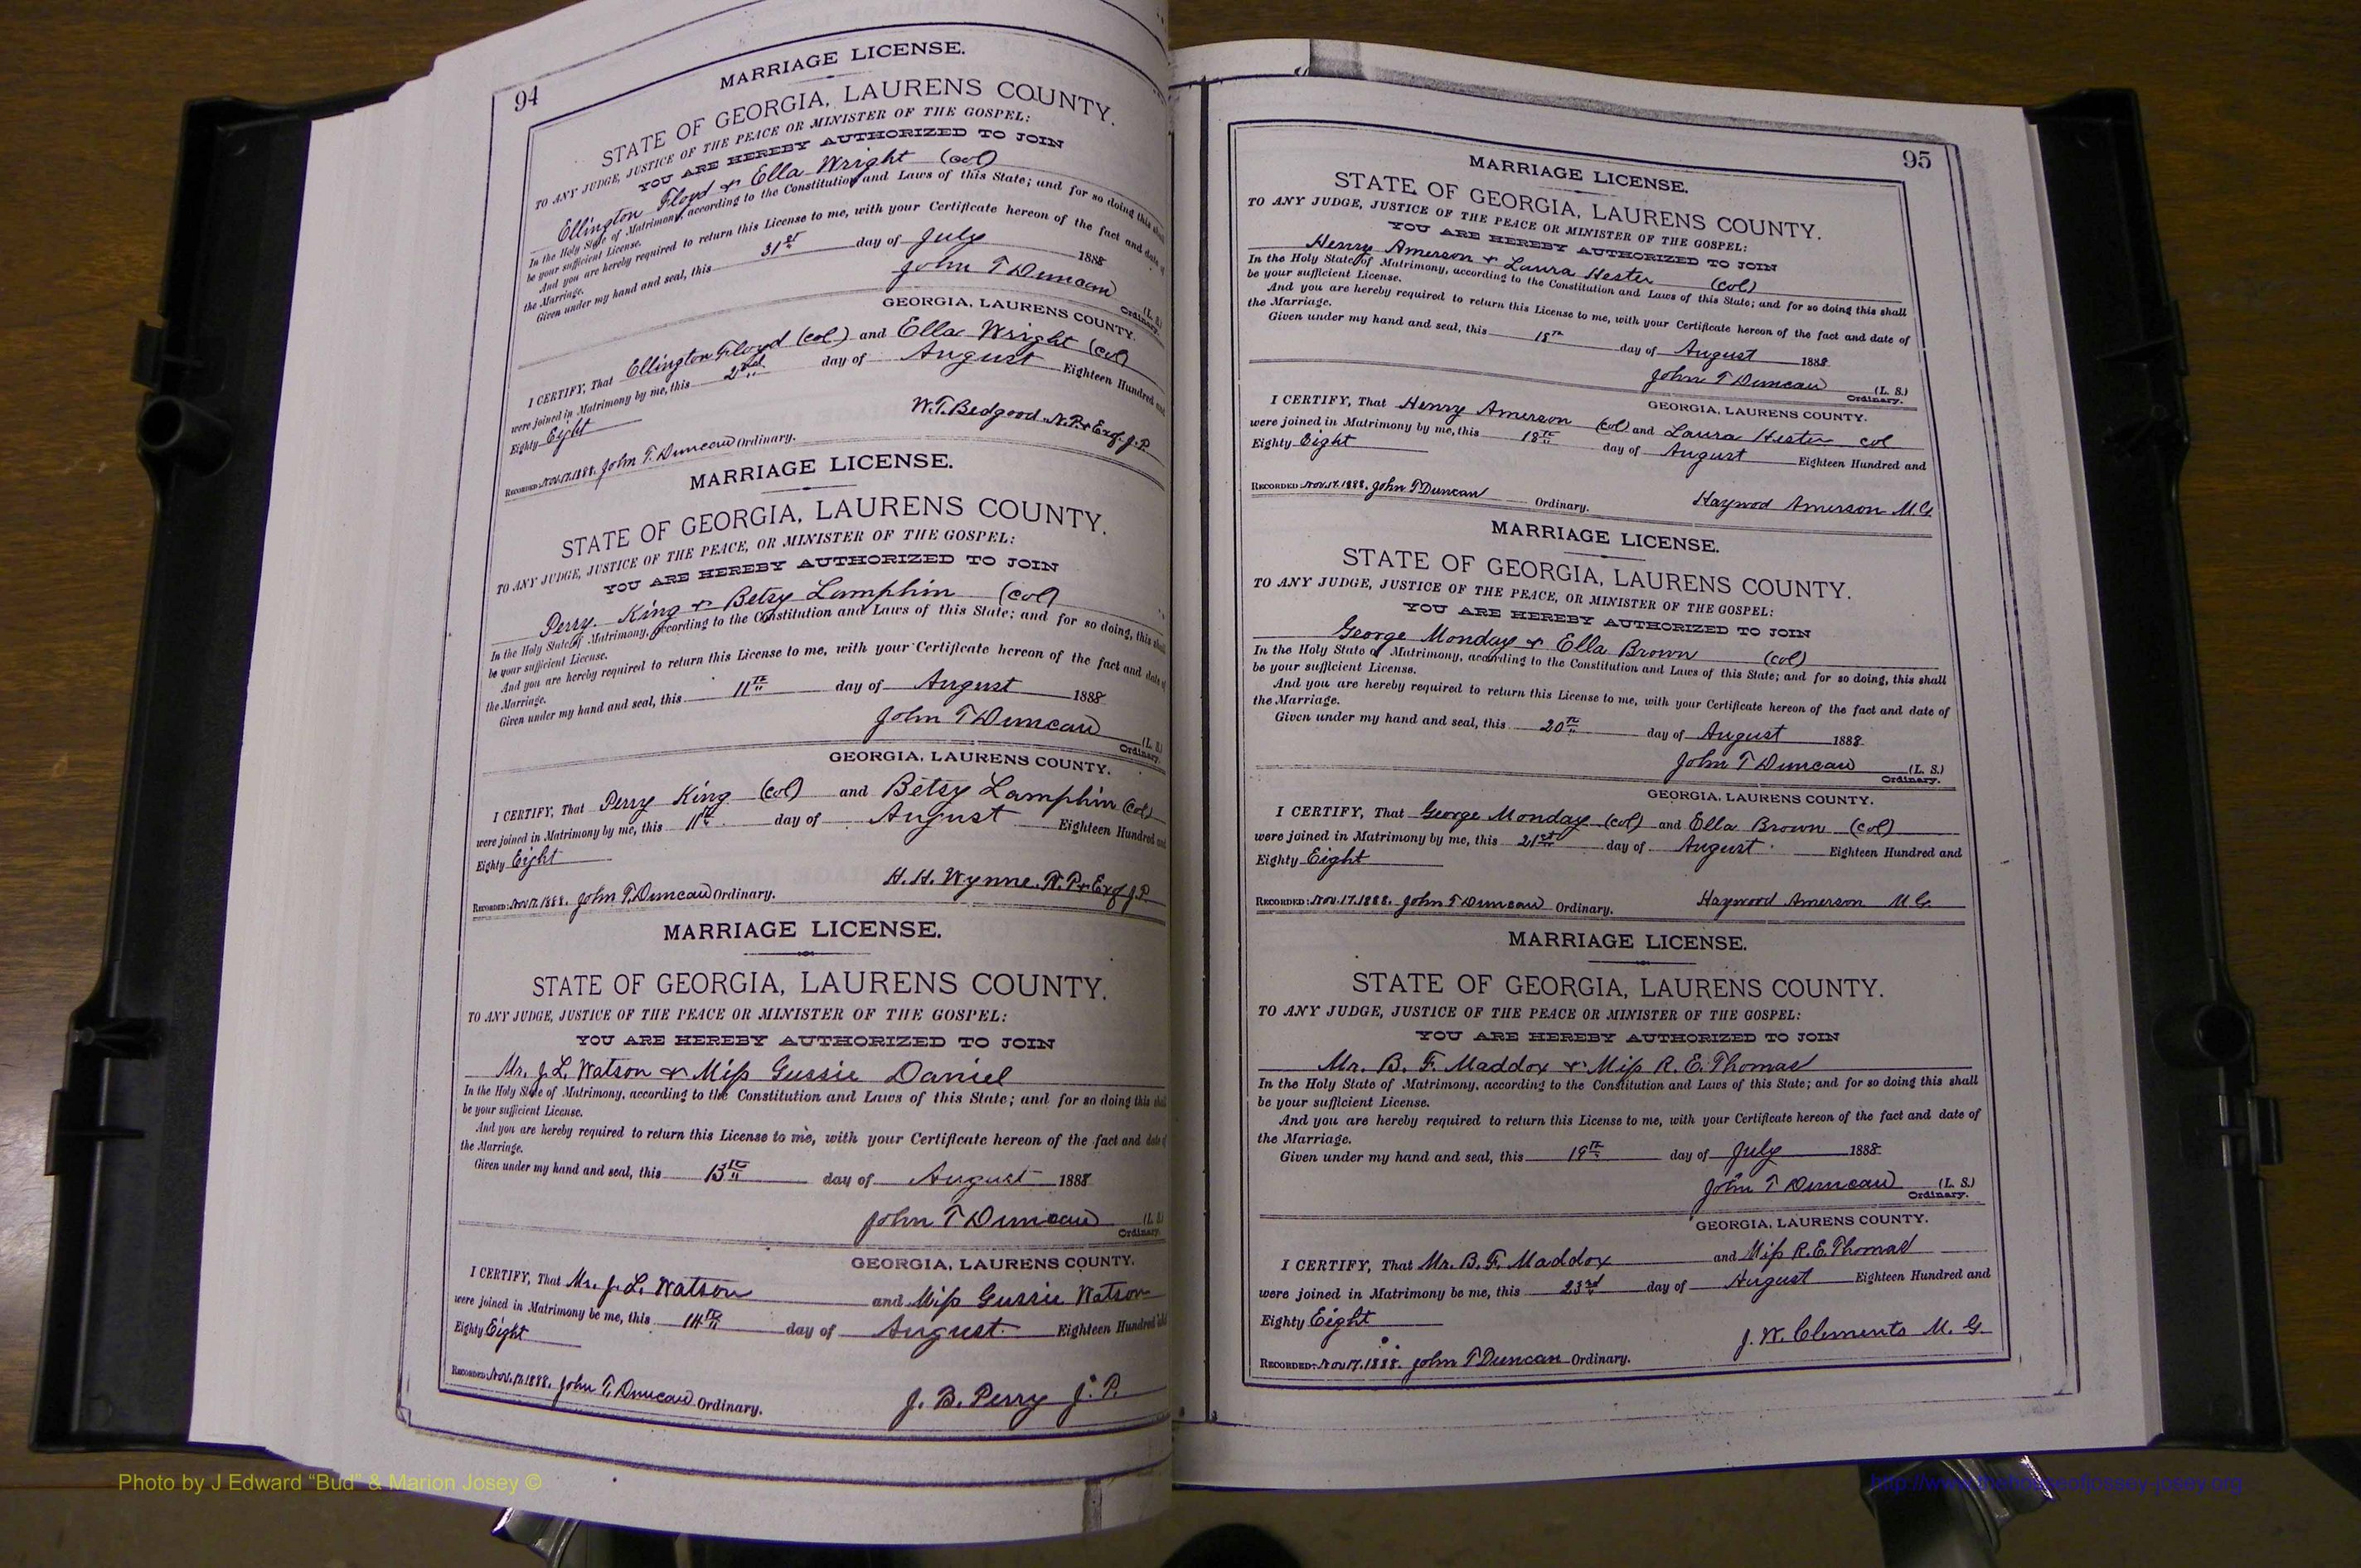 94
MARRIAGE LICENSE.
STATE OF GEORGIA, LAURENS COUNTY.
TO ANY JUDGE, JUSTICE OF THE PEACE OR MINISTER OF THE GOSPEL:
YOU ARE HEREBY AUTHORIZED TO JOIN
Ellington Floyd & Ella Wright (col)
In the Holy State of Matrimony, according to the Constitution and Laws of this State; and for so doing this shall
be your sufficient License.
And you are hereby required to return this License to me, with your Certificate hereon of the fact and date of
the Marriage.
Given under my hand and seal, this 31st day of July 1888
John T Duncan (L. S.)
Ordinary.
GEORGIA, LAURENS COUNTY.
I CERTIFY, That Ellington Floyd (col) and Ella Wright (col)
were joined in Matrimony by me, this 2nd day of August Eighteen Hundred and
Eighty Eight
W.T. Bedgood N.P. & Exof. J.P.
RECORDED: Nov. 17. 1888. John T. Duncan Ordinary.
MARRIAGE LICENSE.
STATE OF GEORGIA, LAURENS COUNTY.
TO ANY JUDGE, JUSTICE OF THE PEACE, OR MINISTER OF THE GOSPEL:
YOU ARE HEREBY AUTHORIZED TO JOIN
Perry King & Betsy Lamphin (col)
In the Holy State of Matrimony, according to the Constitution and Laws of this State; and for so doing, this shall
be your sufficient License.
And you are hereby required to return this License to me, with your Certificate hereon of the fact and date of
the Marriage.
Given under my hand and seal, this 11th day of August 1888
John T Duncan (L. S.)
Ordinary.
GEORGIA, LAURENS COUNTY.
I CERTIFY, That Perry King (col) and Betsy Lamphin (col)
were joined in Matrimony by me, this 11th day of August Eighteen Hundred and
Eighty Eight
H. H. Wynne. N.P. & Exof J.P.
RECORDED: Nov 17. 1888. John T. Duncan Ordinary.
MARRIAGE LICENSE.
STATE OF GEORGIA, LAURENS COUNTY.
TO ANY JUDGE, JUSTICE OF THE PEACE OR MINISTER OF THE GOSPEL:
YOU ARE HEREBY AUTHORIZED TO JOIN
Mr. J. L. Watson & Miss Gussie Daniel
In the Holy State of Matrimony, according to the Constitution and Laws of this State; and for so doing this shall
be your sufficient License.
And you are hereby required to return this License to me, with your Certificate hereon of the fact and date of
the Marriage.
Given under my hand and seal, this 13th day of August 1888
John T Duncan (L. S.)
Ordinary.
GEORGIA, LAURENS COUNTY.
I CERTIFY, That Mr. J. L. Watson and Miss Gussie Watson
were joined in Matrimony be me, this 14th day of August Eighteen Hundred and
Eighty Eight
RECORDED: Nov. 17. 1888. John T. Duncan Ordinary.
J. B. Perry J. P.
95
MARRIAGE LICENSE.
STATE OF GEORGIA, LAURENS COUNTY.
TO ANY JUDGE, JUSTICE OF THE PEACE OR MINISTER OF THE GOSPEL:
YOU ARE HEREBY AUTHORIZED TO JOIN
Henry Amerson & Laura Hester (col)
In the Holy State of Matrimony, according to the Constitution and Laws of this State; and for so doing this shall
be your sufficient License.
And you are hereby required to return this License to me, with your Certificate hereon of the fact and date of
the Marriage.
Given under my hand and seal, this 18th day of August 1888
John T Duncan (L. S.)
Ordinary.
GEORGIA, LAURENS COUNTY.
I CERTIFY, That Henry Amerson (col) and Laura Hester col
were joined in Matrimony by me, this 18th day of August Eighteen Hundred and
Eighty Eight
RECORDED: Nov. 17. 1888. John T Duncan Ordinary.
Haywood Amerson M. G.
MARRIAGE LICENSE.
STATE OF GEORGIA, LAURENS COUNTY.
TO ANY JUDGE, JUSTICE OF THE PEACE, OR MINISTER OF THE GOSPEL:
YOU ARE HEREBY AUTHORIZED TO JOIN
George Monday & Ella Brown (col)
In the Holy State of Matrimony, according to the Constitution and Laws of this State; and for so doing, this shall
be your sufficient License.
And you are hereby required to return this License to me, with your Certificate hereon of the fact and date of
the Marriage.
Given under my hand and seal, this 20th day of August 1888
John T Duncan (L. S.)
Ordinary.
GEORGIA, LAURENS COUNTY.
I CERTIFY, That George Monday (col) and Ella Brown (col)
were joined in Matrimony by me, this 21st day of August Eighteen Hundred and
Eighty Eight
RECORDED: Nov. 17. 1888. John T Duncan Ordinary.
Haywood Amerson M. G.
MARRIAGE LICENSE.
STATE OF GEORGIA, LAURENS COUNTY.
TO ANY JUDGE, JUSTICE OF THE PEACE OR MINISTER OF THE GOSPEL:
YOU ARE HEREBY AUTHORIZED TO JOIN
Mr. B. F. Maddox & Miss R. E. Thomas
In the Holy State of Matrimony, according to the Constitution and Laws of this State; and for so doing this shall
be your sufficient License.
And you are hereby required to return this License to me, with your Certificate hereon of the fact and date of
the Marriage.
Given under my hand and seal, this 19th day of July 1888
John T Duncan (L. S.)
Ordinary.
GEORGIA, LAURENS COUNTY.
I CERTIFY, That Mr. B. F. Maddox and Miss R. E. Thomas
were joined in Matrimony be me, this 23rd day of August Eighteen Hundred and
Eighty Eight
J. W. Clements M. G.
RECORDED: Nov 17. 1888. John T Duncan Ordinary.
Photo by J Edward “Bud” & Marion Josey ©
http://www.thehouseofjossey-josey.org